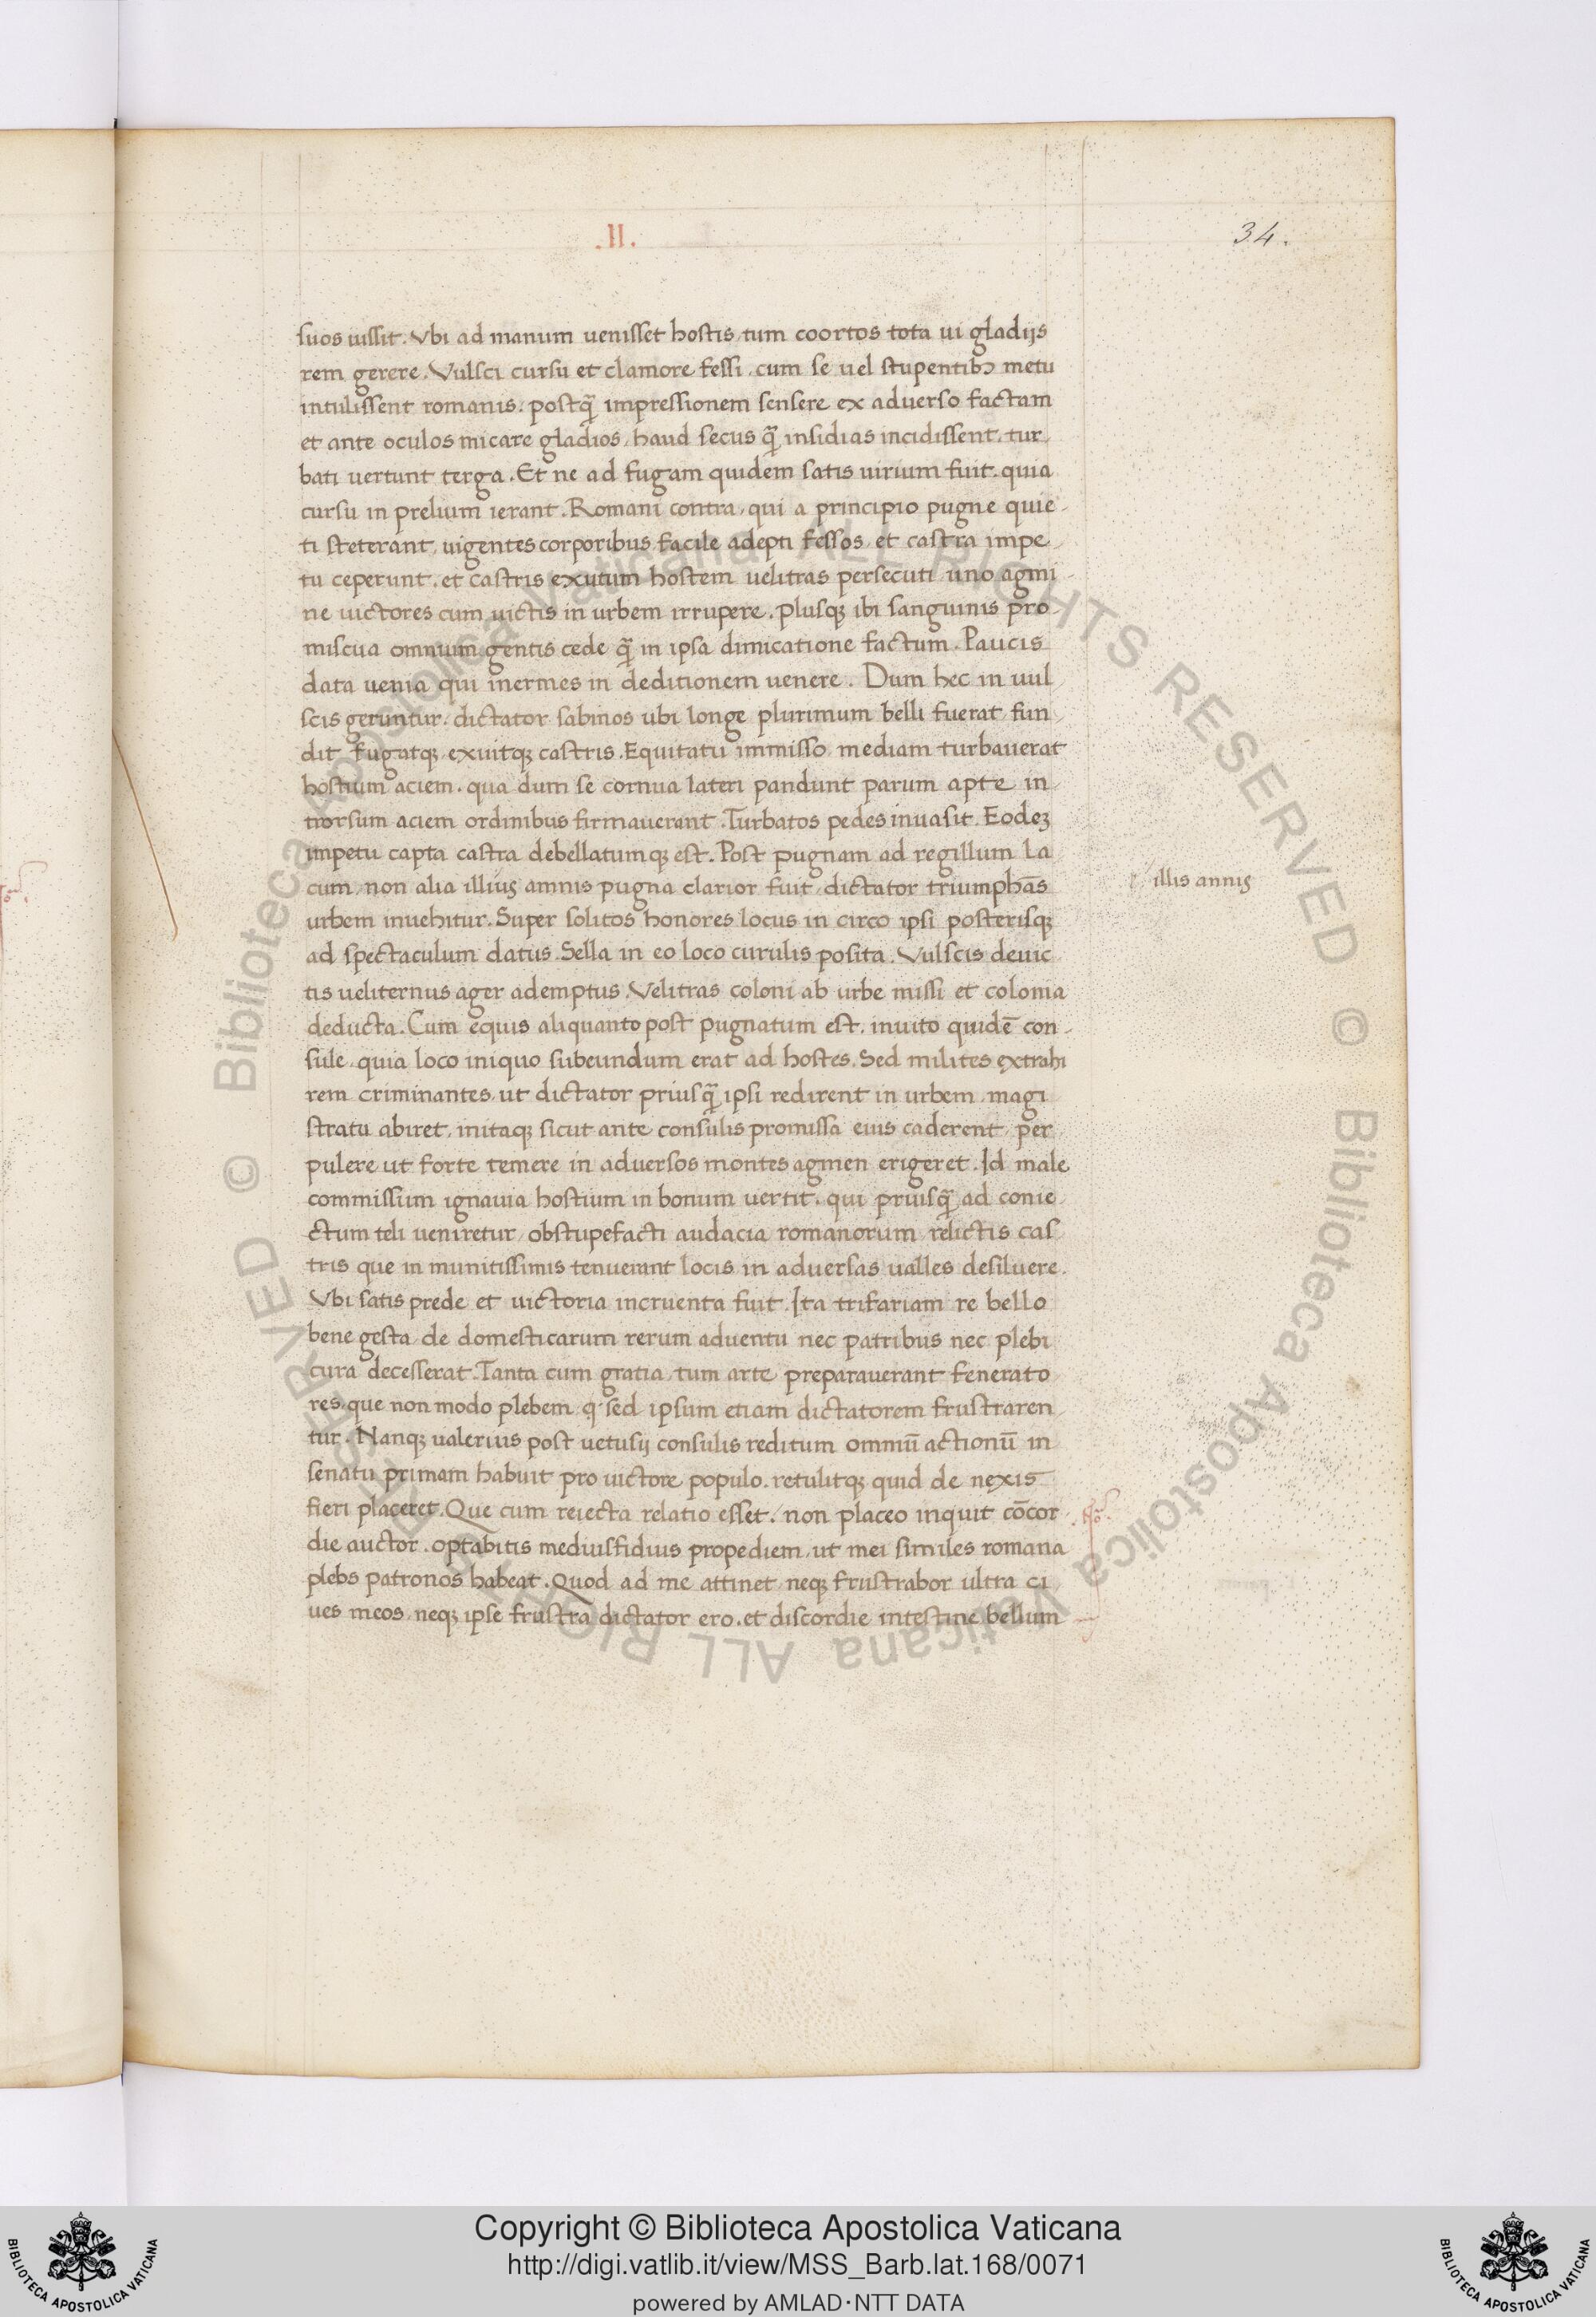 .II.
34.
suos iussit. Vbi ad manum uenisset hostis, tum coortos tota ui gladijs
rem gerere. Vulsci cursu et clamore fessi, cum se uel stupentibꝫ metu
intulissent romanis. postq̃ impressionem sensere ex aduerso factam
et ante oculos micare gladios, haud secus q̃ insidias incidissent, tur
bati uertunt terga. Et ne ad fugam quidem satis uirium fuit. quia
cursu in prelium ierant. Romani contra, qui a principio pugne quie
ti steterant, uigentes corporibus, facile adepti fessos, et castra impe
tu ceperunt. et castris exutum hostem uelitras persecuti uno agmi
ne uictores cum uictis in urbem irrupere. plusqꝫ ibi sanguinis pro
miscua omnium gentis cede q̃ in ipsa dimicatione factum. Paucis
data uenia qui inermes in deditionem uenere. Dum hec in uul
scis geruntur. dictator sabinos ubi longe plurimum belli fuerat, fun
dit, fugatqꝫ, exuitqꝫ castris. Equitatu immisso mediam turbauerat
hostium aciem. qua dum se cornua lateri pandunt parum apte in
trorsum aciem ordinibus firmauerant. Turbatos pedes inuasit. Eodeꝫ
impetu capta castra debellatumqꝫ est. Post pugnam ad regillum La
cum, non alia illius amnis pugna clarior fuit, dictator triumphãs
illis annis
urbem inuehitur. Super solitos honores locus in circo ipsi posterisqꝫ
ad spectaculum datus. Sella in eo loco curulis posita. Vulscis deuic
tis ueliternus ager ademptus. Velitras coloni ab urbe missi et colonia
deducta. Cum equis aliquanto post pugnatum est. inuito quidẽ con
sule, quia loco iniquo subeundum erat ad hostes. Sed milites extrahi
rem criminantes, ut dictator priusq̃ ipsi redirent in urbem magi
stratu abiret, initaqꝫ sicut ante consulis promissa eius caderent, per
pulere ut forte temere in aduersos montes agmen erigeret. Id male
commissum ignauia hostium in bonum uertit. qui priusq̃ ad conie
ctum teli ueniretur, obstupefacti audacia romanorum relictis cas
tris que in munitissimis tenuerant locis in aduersas ualles desiluere.
Vbi satis prede et uictoria incruenta fuit. Ita trifariam re bello
bene gesta, de domesticarum rerum aduentu nec patribus nec plebi
cura decesserat. Tanta cum gratia, tum arte preparauerant fenerato
res, que non modo plebem q̃ sed ipsum etiam dictatorem frustraren
tur. Nanqꝫ ualerius post uetusij consulis reditum omniũ actionũ in
senatu primam habuit pro uictore populo. retulitqꝫ quid de nexis
fieri placeret. Que cum reiecta relatio esset. non placeo inquit cõcor
die auctor. optabitis mediusfidius propediem, ut mei similes romana
plebs patronos habeat. Quod ad me attinet neqꝫ frustrabor ultra ci
ues meos, neqꝫ ipse frustra dictator ero. et discordie intestine bellum
Copyright © Biblioteca Apostolica Vaticana
http://digi.vatlib.it/view/MSS_Barb.lat.168/0071
powered by AMLAD·NTT DATA
© Biblioteca Apostolica Vaticana ALL RIGHTS RESERVED
© Biblioteca Apostolica Vaticana ALL RIGHTS RESERVED
BIBLIOTECA APOSTOLICA VATICANA
BIBLIOTECA APOSTOLICA VATICANA